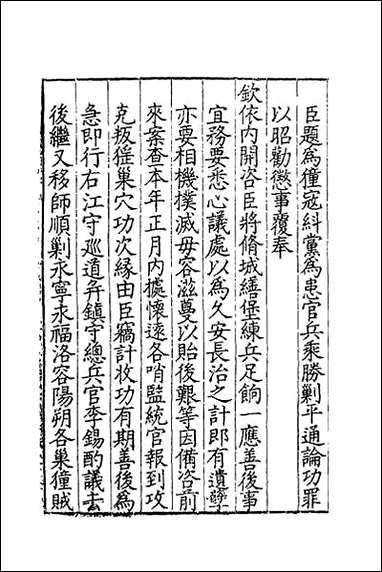 臣題為獞寇糾黨為患官兵乘勝剿平通論功罪
以昭勸懲事覆奉
欽依内開咨臣將脩城繕堡練兵足餉一應善後事
宜務要悉心議處以為久安長治之計即有遺孽
亦要相機撲滅毋容滋蔓以貽後艱等因備咨前
來案查本年正月内據懷遠各哨監統官報到攻
克叛猺巢穴功次緣由臣竊計收功有期善後為
急即行右江守廵道弁鎮守總兵官李錫酌議去
後繼又移師順剿永寧永福洛容陽朔各巢獞賊